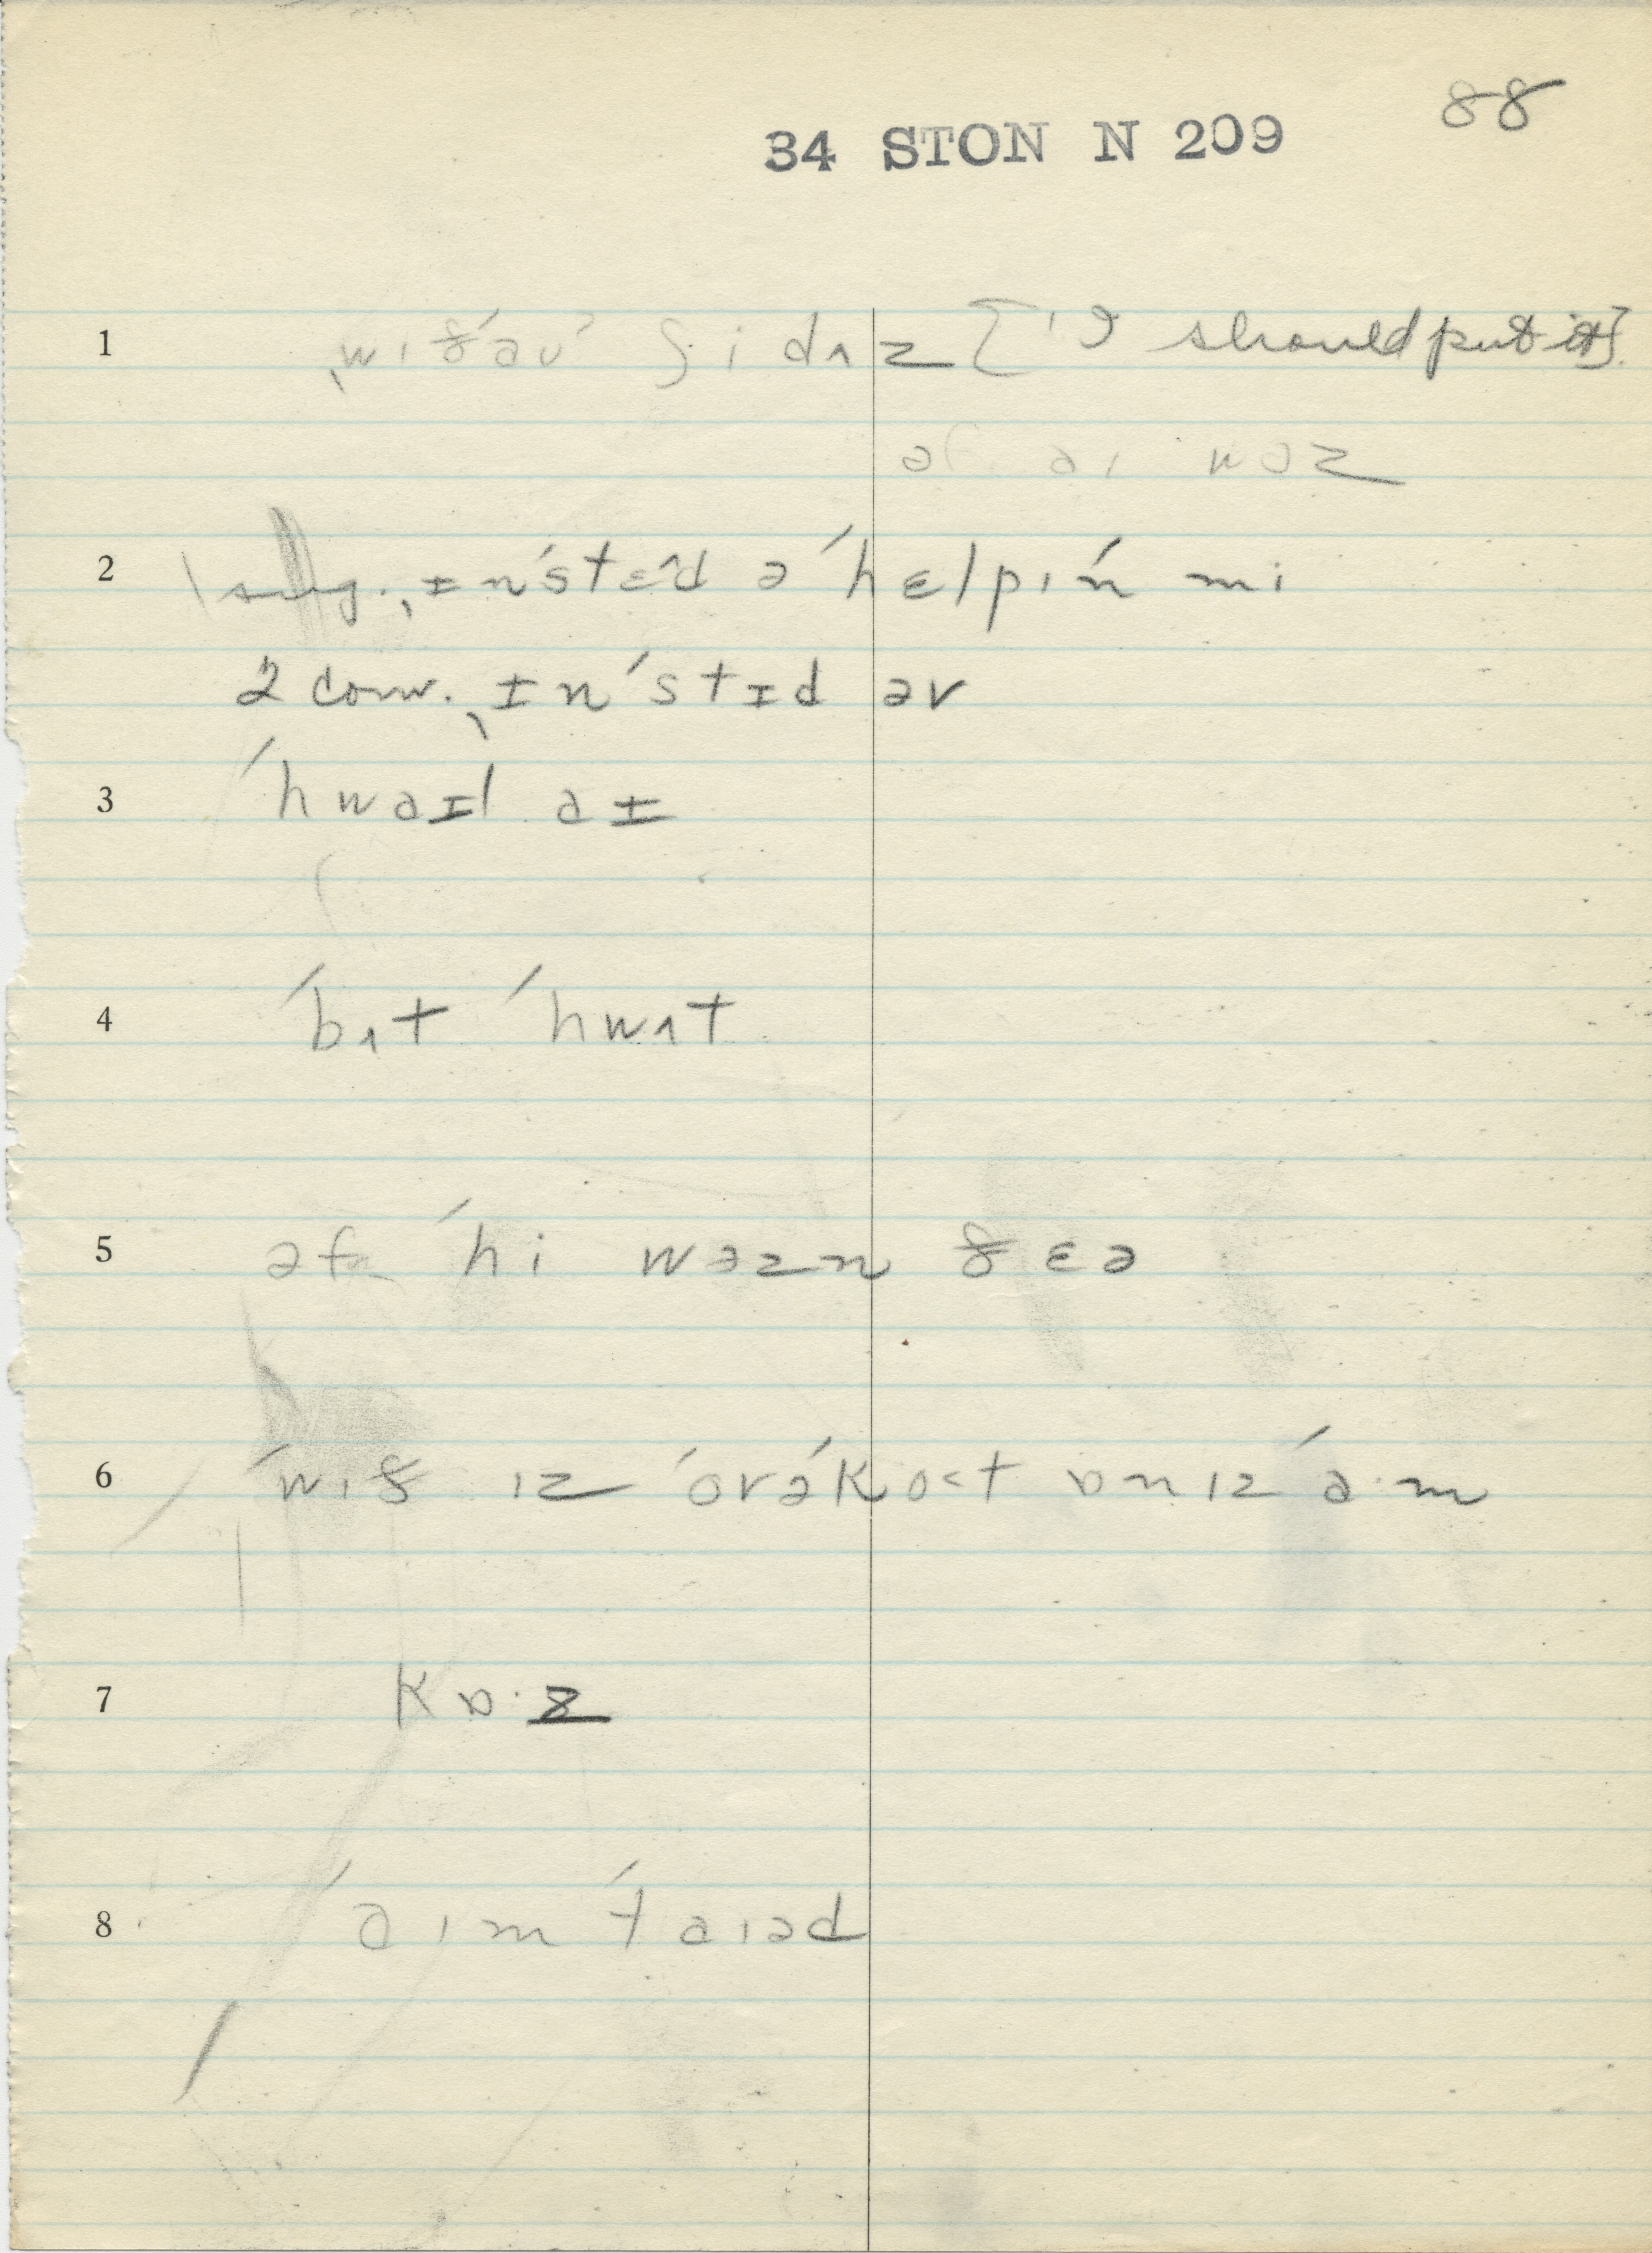 88
34 STON N 209
1 ˌwɪðˈaʊˈ ʃi dʌz [ˈI should put it].
əf aɪ wəz
2 1 sug. ˌɪnˈstɛˆd əˈhɛlpɪn mi
2 conv. ˌɪnˈstɪd əv
3 ˈhwaɪl aɪ
4 ˈbʌt ˈhwʌt
5 əf ˈhi wəzn ðɛə
6 ˈwɪð ɪz ˈovəˈko<t ɒn ɪz ˈa·m
7 kɒ·z
8 ˈaɪm ˈtaɪəd